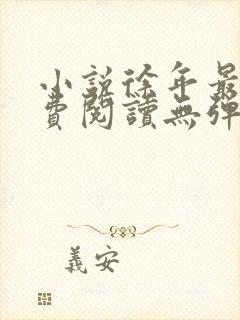 小説徐年最
費閱讀無彈
義安